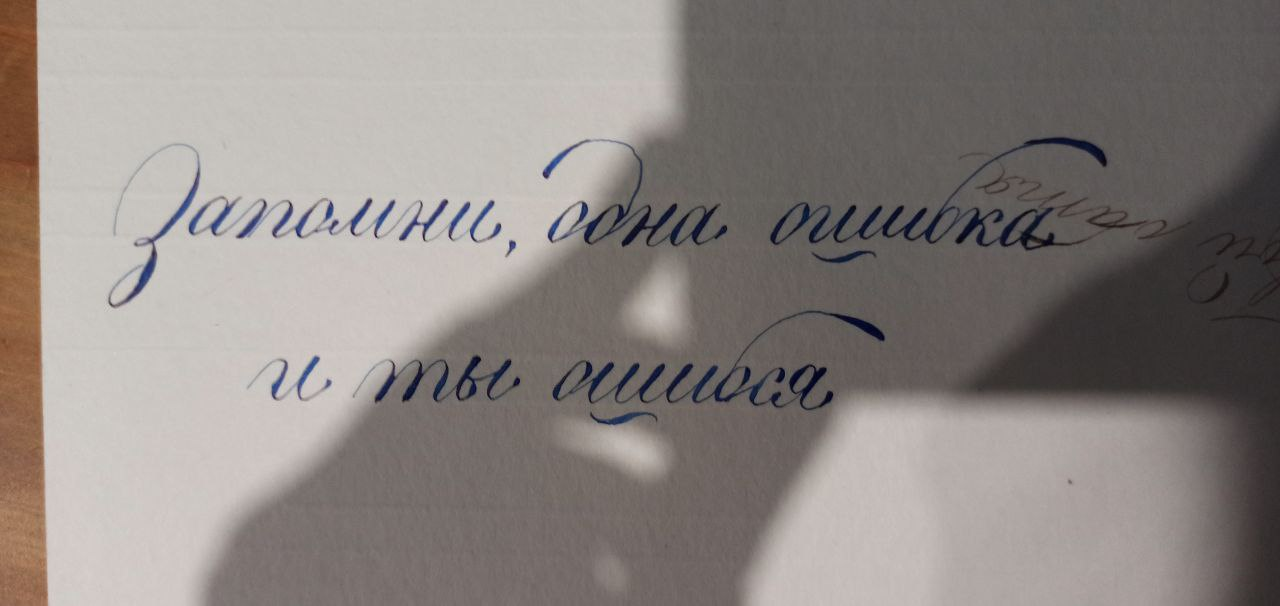 Запомни, одна ошибка
и ты ошибся